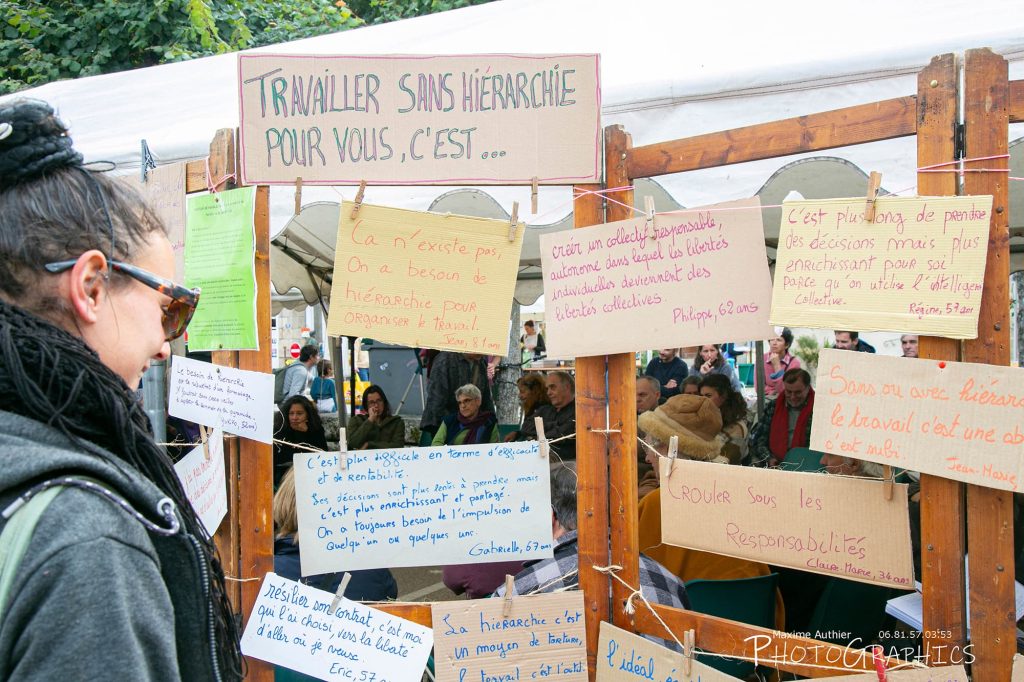 TRAVAILLER SANS HIÉRARCHIE
POUR VOUS, C'EST...
Ça n'existe pas,
On a besoin de
hiérarchie pour
organiser le travail.
Jean, 81 ans
créer un collectif responsable,
autonome dans lequel les libertés
individuelles deviennent des
libertés collectives.
Philippe, 62 ans
C'est plus long de prendre
des décisions mais plus
enrichissant pour soi
parce qu'on utilise l'intelligence
collective.
Régine, 57 ans
Le besoin de hiérarchie
est la séquelle d'un formatage.
32 ans
Sans ou avec hiérar
le travail c'est une
c'est subi.
Jean-Marie,
C'est plus difficile en terme d'efficacité
et de rentabilité.
Les décisions sont plus lentes à prendre mais
c'est plus enrichissant et partagé.
On a toujours besoin de l'impulsion de
Quelqu'un ou quelques uns.
Gabrielle, 67 ans
CROULER SOUS LES
RESPONSABILITÉS
Claire-Marie, 34 ans
résilier son contrat, c'est moi
qui l'ai choisi, vers la liberté
d'aller où je veux.
Eric, 57
La hiérarchie c'est
un moyen de torture,
le travail c'est l'outil
l'idéal
Maxime Authier 06.81.57.03.53
PHOTOGRAPHICS